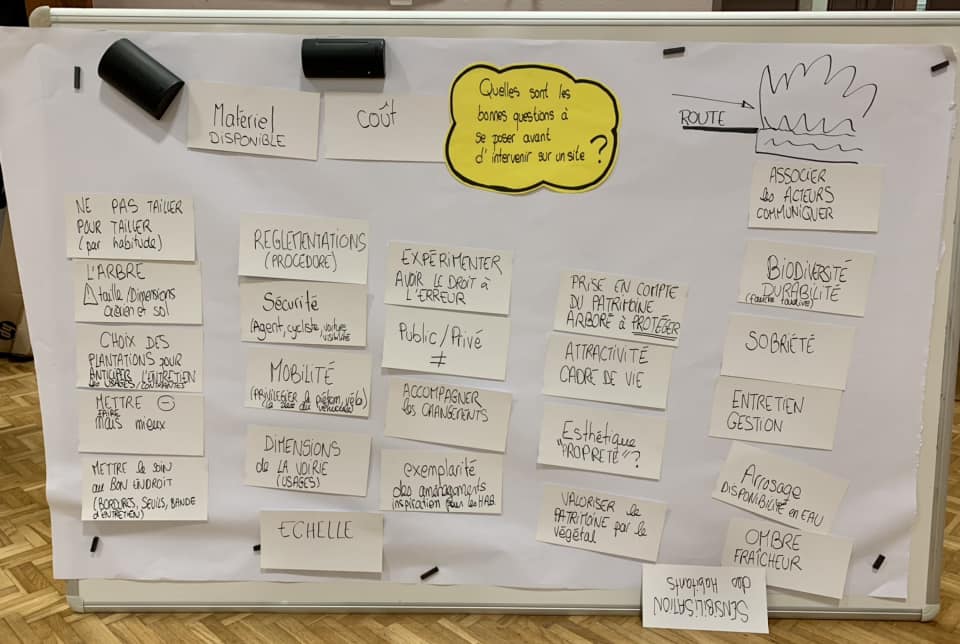 Quelles sont les
bonnes questions à
se poser avant
d'intervenir sur un site ?
Matériel
DISPONIBLE
COÛT
ROUTE
NE PAS TAILLER
POUR TAILLER
(par habitude)
L'ARBRE
⚠ taille/Dimensions
aérien et sol
CHOIX DES
PLANTATIONS POUR
ANTICIPER L'ENTRETIEN
les USAGES/CONTRAINTES
METTRE ⊖
FAIRE
mais mieux
METTRE le SOIN
au BON ENDROIT
(BORDURES, SEUILS, BANDE
d'ENTRETIEN)
REGLEMENTATIONS
(PROCÉDURE)
Sécurité
(Agent, cycliste, voiture
visibilité
MOBILITÉ
(PRIVILEGIER le piéton, vélo)
DIMENSIONS
de LA VOIRIE
(USAGES)
ECHELLE
EXPÉRIMENTER
AVOIR LE DROIT À
L'ERREUR
Public/Privé
≠
ACCOMPAGNER
les CHANGEMENTS
exemplarité
des aménagements
inspiration pour les HAB.
PRISE EN COMPTE
DU PATRIMOINE
ARBORÉ à PROTÉGER
ATTRACTIVITÉ
CADRE DE VIE
Esthétique
"PROPRETÉ" ?
VALORISER le
PATRIMOINE par le
végétal
ASSOCIER
les ACTEURS
COMMUNIQUER
BIODIVERSITÉ
DURABILITÉ
(fauche tardive)
SOBRIÉTÉ
ENTRETIEN
GESTION
Arrosage
DISPONIBILITÉ en EAU
OMBRE
FRAÎCHEUR
SENSIBILISATION
des Habitants